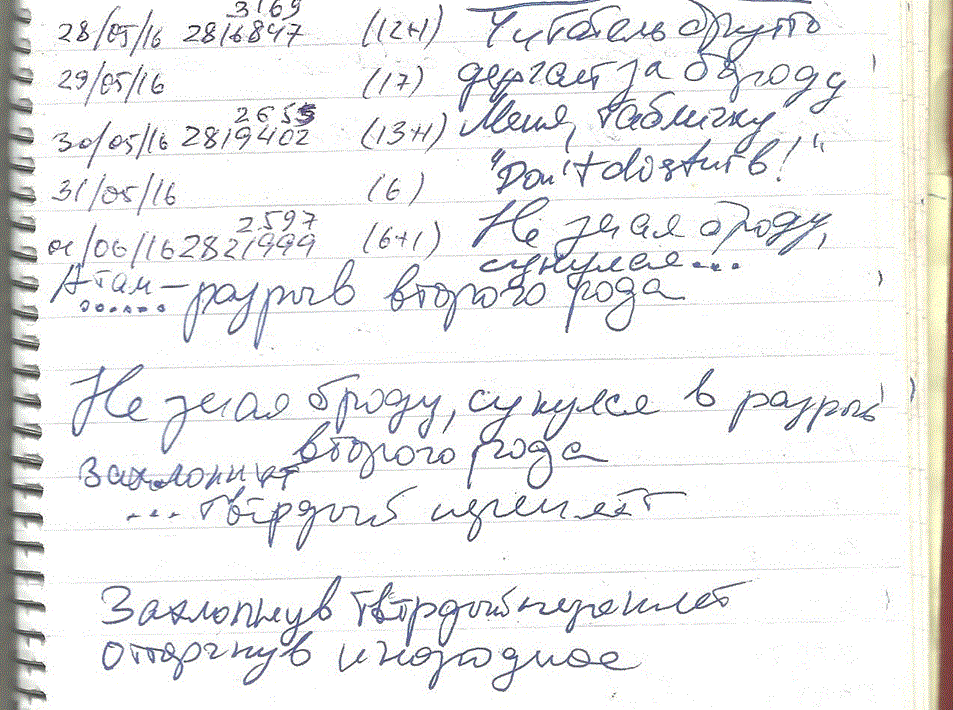 3169
28/05/16 2816847 (12+1) Читатель брутто
29/05/16 (17) дергает за бороду
2655
30/05/16 2819402 (13+1) Меня, табличку
31/05/16 (6) "Don't disturb!"
2597
01/06/16 2821999 (6+1) Не зная броду,
сунулся...
А там – разрыв второго рода
Не зная броду, сунулся в разрыв
второго рода
Захлопнит
... твёрдый переплёт
Захлопнув твёрдый переплёт
отторгнув инородное